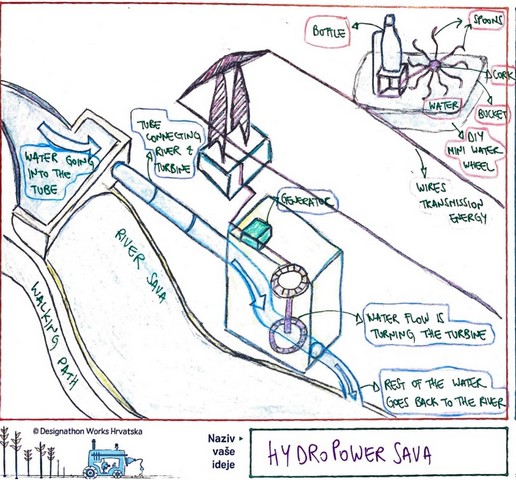 BOTTLE
SPOONS
CORK
WATER
BUCKET
DIY
MINI WATER
WHEEL
TUBE
CONNECTING
RIVER &
TURBINE
WATER GOING
INTO THE
TUBE
WIRES
TRANSMISSION
ENERGY
GENERATOR
RIVER SAVA
WALKING PATH
WATER FLOW IS
TURNING THE TURBINE
REST OF THE WATER
GOES BACK TO THE RIVER
© Designathon Works Hrvatska
Naziv
vaše
ideje
HYDROPOWER SAVA